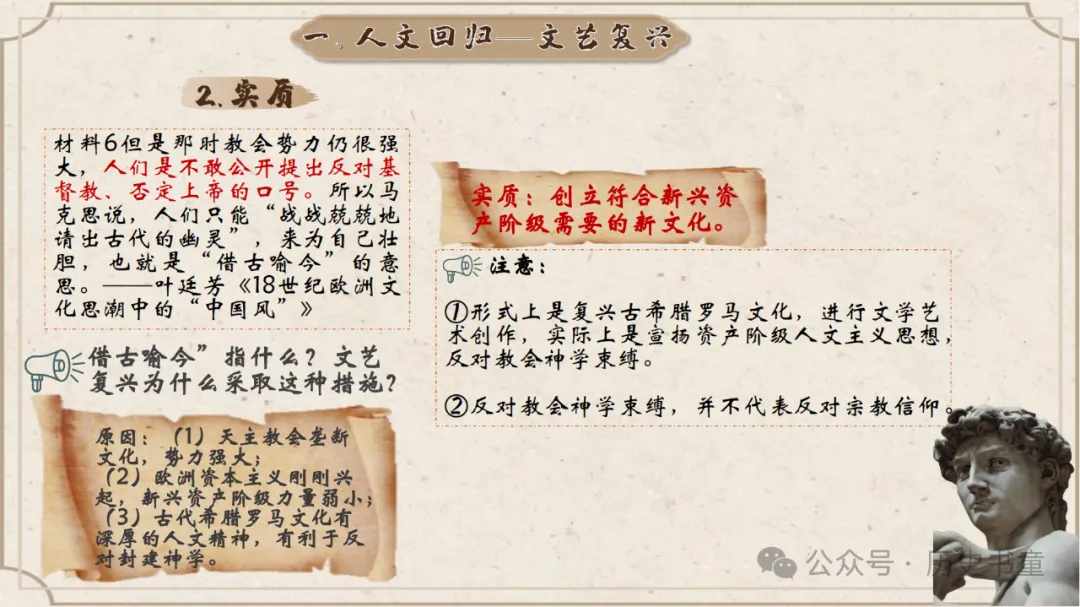 一、人文回归——文艺复兴
2.实质
材料6但是那时教会势力仍很强
大，人们是不敢公开提出反对基
督教、否定上帝的口号。所以马
克思说，人们只能“战战兢兢地
请出古代的幽灵”，来为自己壮
胆，也就是“借古喻今”的意
思。——叶廷芳《18世纪欧洲文
化思潮中的“中国风”》
借古喻今”指什么？文艺
复兴为什么采取这种措施？
原因：（1）天主教会垄断
文化，势力强大；
（2）欧洲资本主义刚刚兴
起，新兴资产阶级力量弱小；
（3）古代希腊罗马文化有
深厚的人文精神，有利于反
对封建神学。
实质：创立符合新兴资
产阶级需要的新文化。
注意：
①形式上是复兴古希腊罗马文化，进行文学艺
术创作，实际上是宣扬资产阶级人文主义思想，
反对教会神学束缚。
②反对教会神学束缚，并不代表反对宗教信仰。
公众号·历史书童